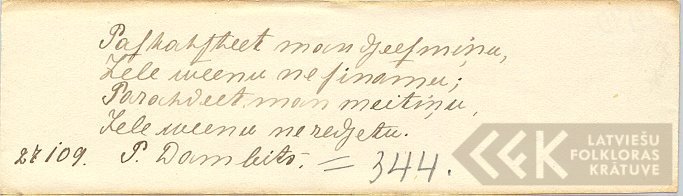 Paſkahſheet man dzeeſmiņu,
Zele weenu neſinamu;
Parahdeet man meitiņu,
Zele weenu neredzetu.
27109. P. Dambits. = 344.
LATVIEŠU
FOLKLORAS
KRĀTUVE